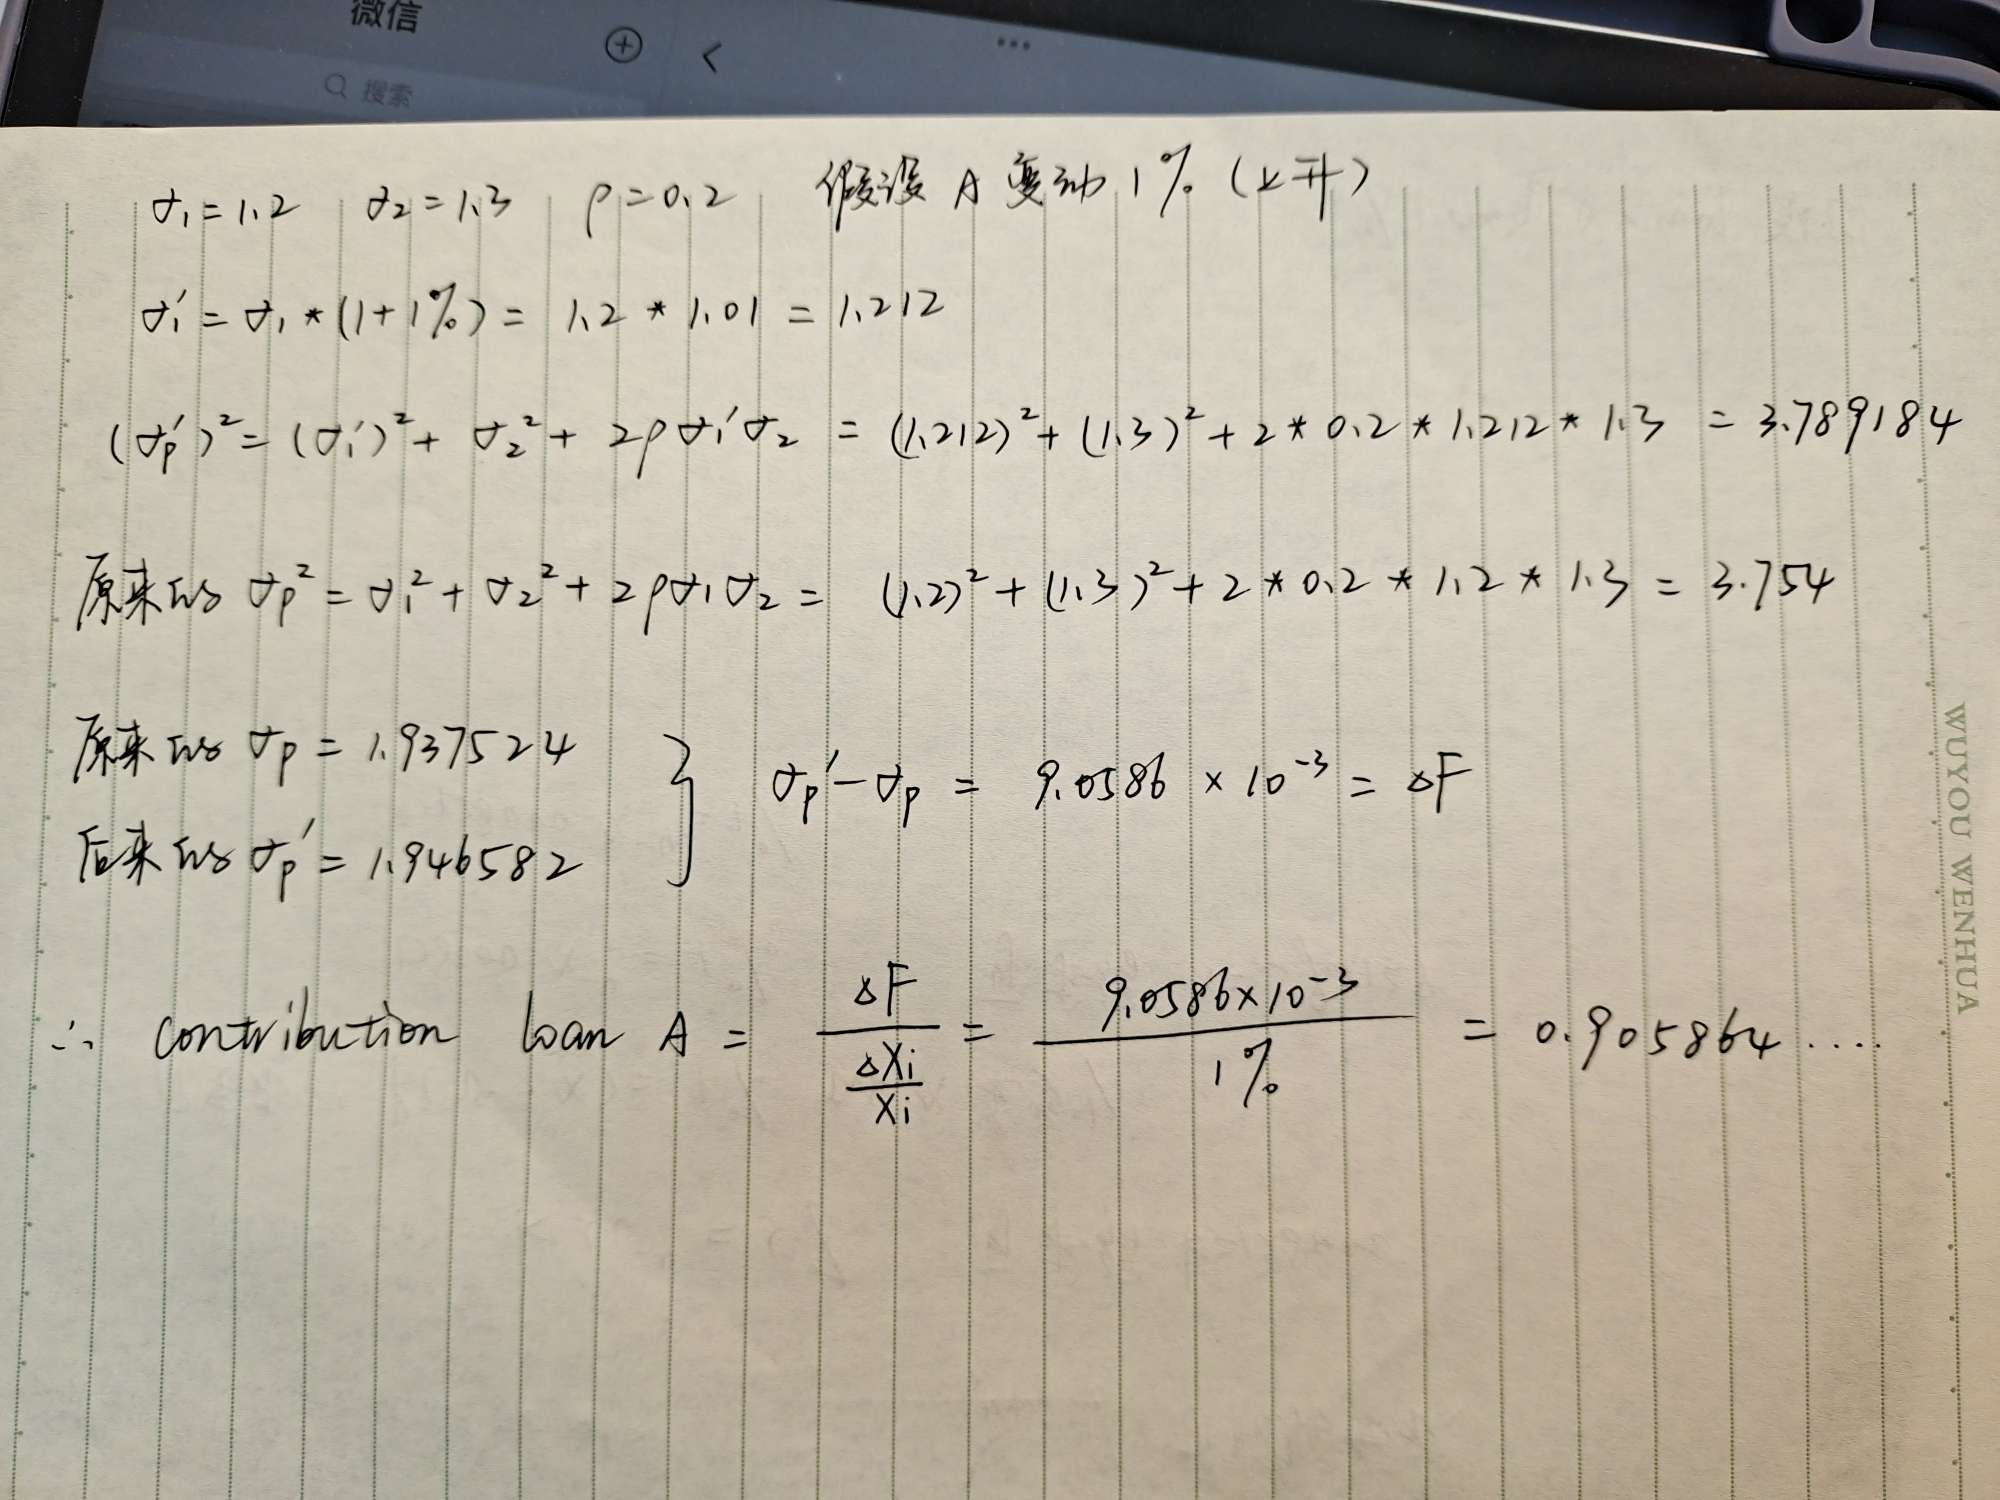 微信
搜索
σ₁=1.2 σ₂=1.3 ρ=0.2 假设 A 变动 1% (上升)
σ₁′ = σ₁*(1+1%) = 1.2 * 1.01 = 1.212
(σp′)² = (σ₁′)² + σ₂² + 2ρσ₁′σ₂ = (1.212)² + (1.3)² + 2*0.2*1.212*1.3 = 3.789184
原来的 σp² = σ₁² + σ₂² + 2ρσ₁σ₂ = (1.2)² + (1.3)² + 2*0.2*1.2*1.3 = 3.754
原来的 σp = 1.937524
后来的 σp′ = 1.946582
} σp′-σp = 9.0586 × 10⁻³ = ΔF
∴ contribution loan A = ΔF / (ΔXi/Xi) = 9.0586×10⁻³ / 1% = 0.905864....
WUYOU WENHUA